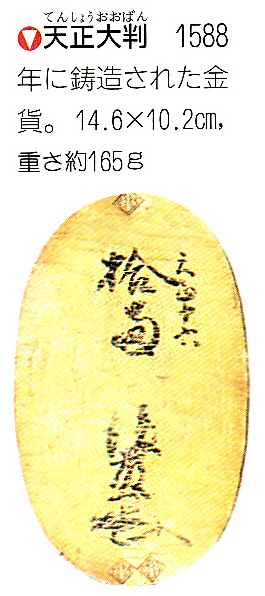 てんしょうおおばん
天正大判 1588
年に鋳造された金
貨。14.6×10.2cm,
重さ約165g
拾両